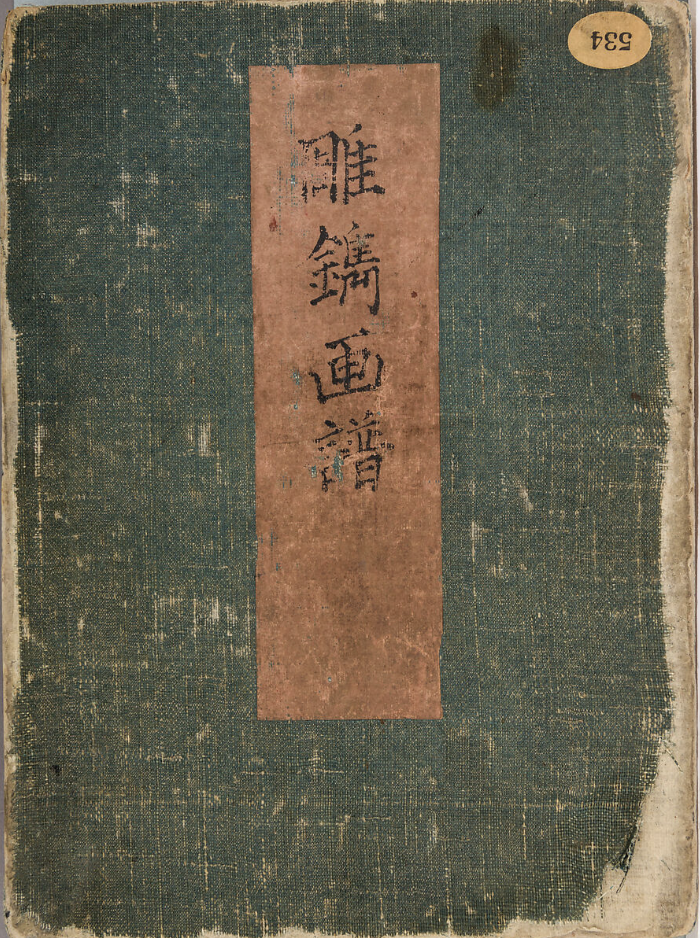 534
雕鐫画譜